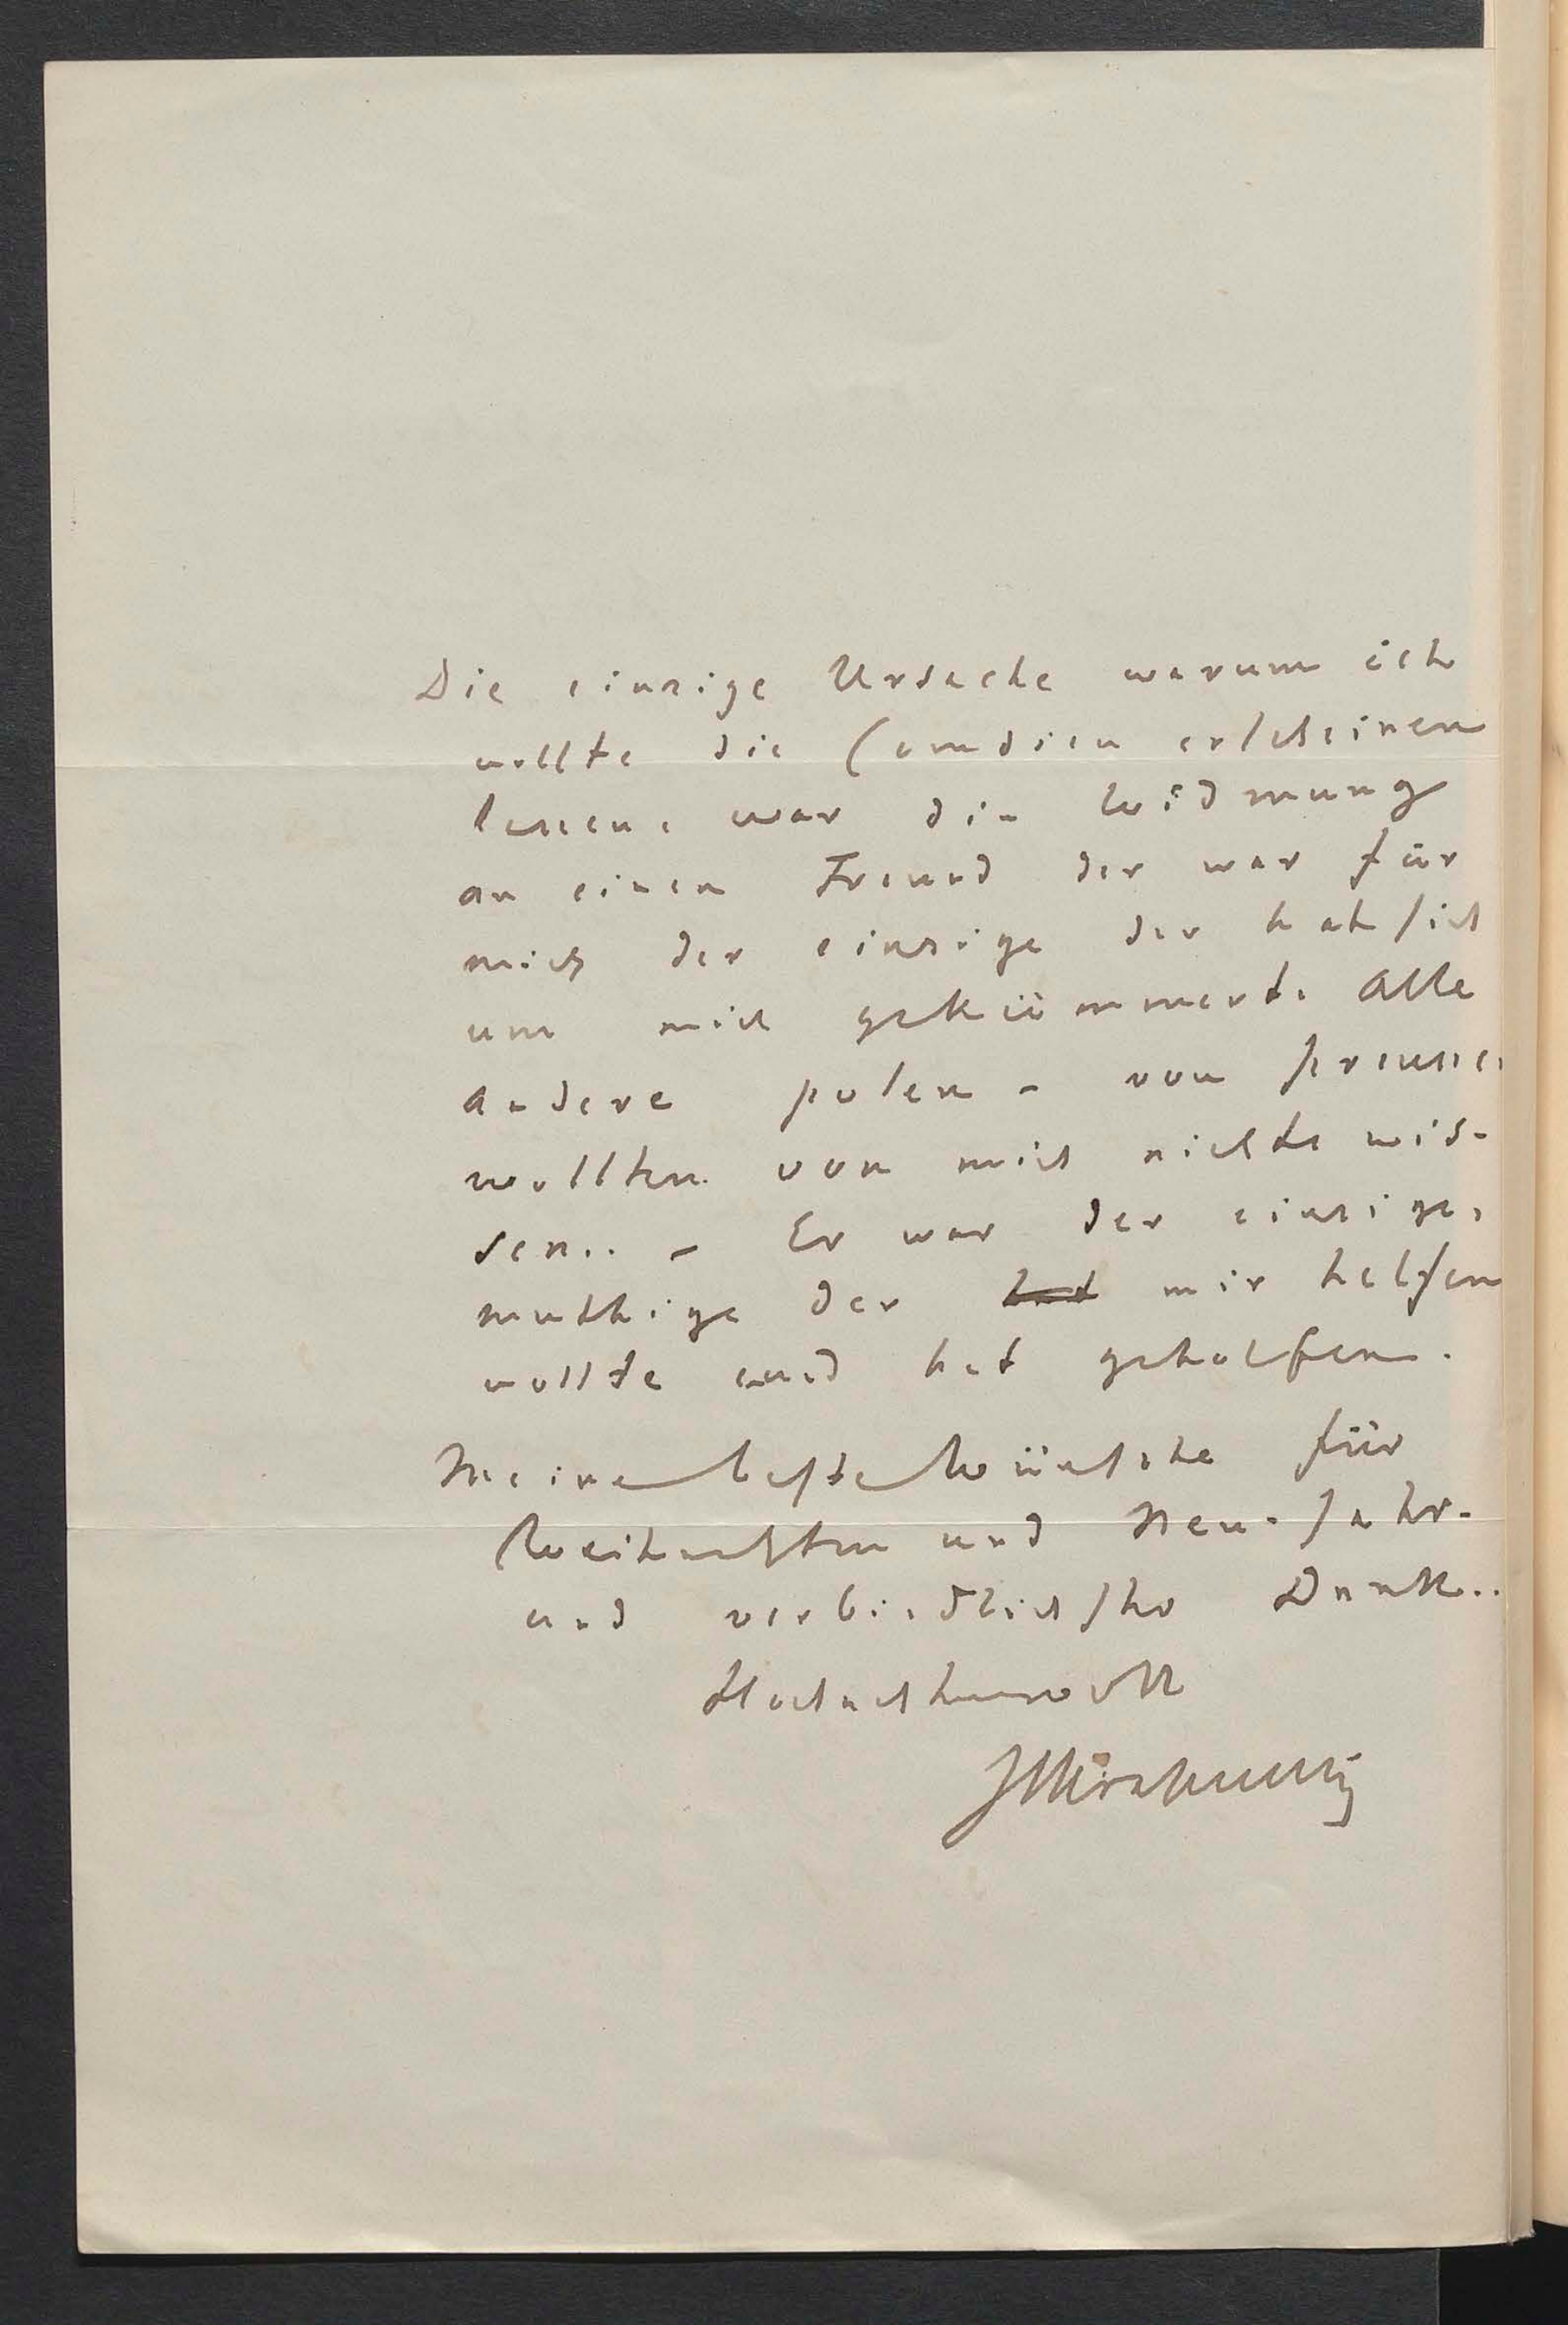 Die einzige Ursache warum ich
wollte die Comödien erscheinen
lassen, war die Widmung
an einen Freund der war für
mich der einzige der hat sich
um mich gekümmert. Alle
andere polen – von
wollten von mich nichts wis-
sen.. – Er war der einzige,
muthige der hat mir helfen
wollte und hat geholfen.
Meine beste Wünsche für
Weihnachten und Neu-Jahr-
und verbindlichster Dank..
Hochachtungsvoll